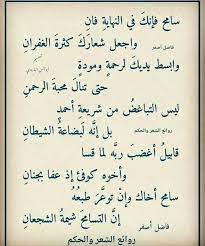 سامح فإنك في النهاية فان
واجعل شعارك كثرة الغفران
فاضل أصغر
وابسط يديك لرحمةٍ ومودةٍ
حتى تنال محبة الرحمنِ
ليس التباغضُ من شريعةِ أحمدٍ
بل إنّه لبضاعةُ الشيطان
روائع الشعر والحكم
قابيلُ أغضبَ ربَّه لما قسا
وأخوه كوفئَ إذ عفا بجنانِ
سامح أخاك وإن توعَّرَ طبعُهُ
إنَّ التسامحَ شيمةُ الشجعانِ
فاضل أصغر
روائع الشعر والحكم